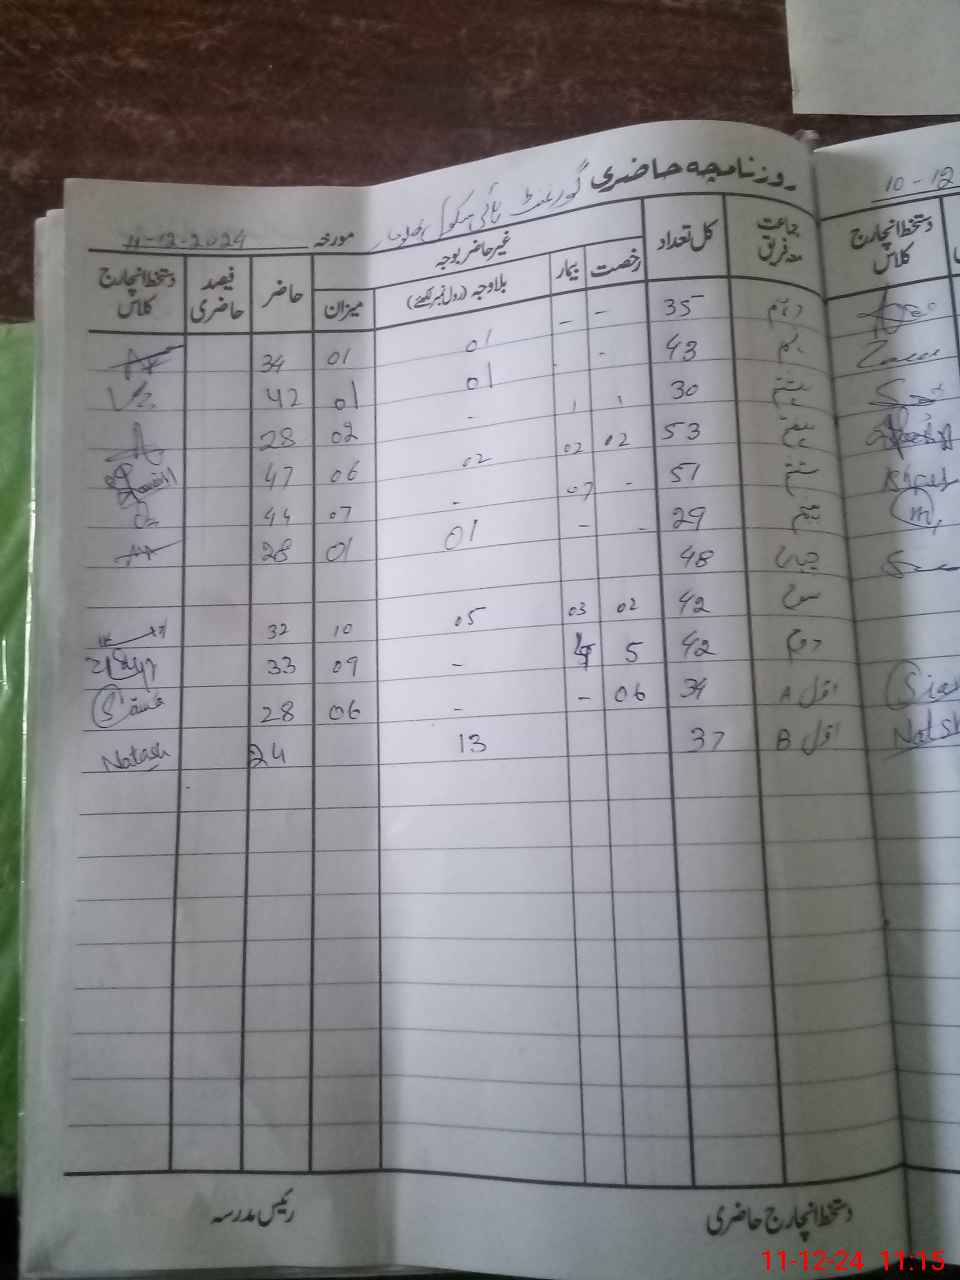 روزنامچہ حاضری گورنمنٹ ہائی سکول
مورخہ 11-12-2024
جماعت معہ فریق کل تعداد غیر حاضر بوجہ حاضر فیصد حاضری دستخط انچارج کلاس
رخصت بیمار بلاوجہ (رول نمبر لکھئے) میزان
دہم 35 - - 01 01 34
نہم 43 - 01 01 42
ہشتم 30 1 1 - 02 28
ہفتم 53 02 02 02 06 47
ششم 51 - 07 - 07 44
پنجم 29 - - 01 01 28
چہارم 48
سوم 42 02 03 05 10 32
دوم 42 5 4 - 09 33
اول A 34 06 - - 06 28
اول B 37 13 24 Natash
دستخط انچارج حاضری رئیس مدرسہ
10-12
دستخط انچارج کلاس
11-12-24 11:15